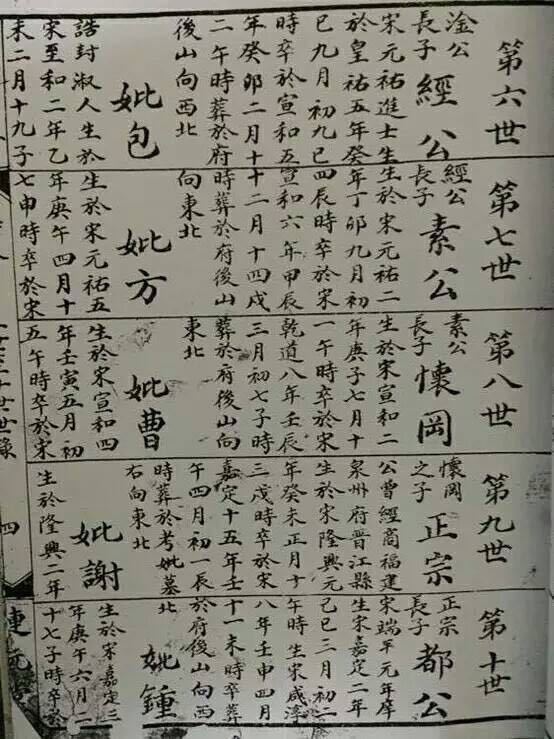 第六世
淦公
長子
經公
宋元祐進士生
於皇祐五年癸
巳九月初九巳
時卒於宣和五
年癸卯二月十
二午時葬於府
後山向西北
妣包
誥封淑人生於
宋至和二年乙
未二月十九子
第七世
經公
長子
素公
生於宋元祐二
年丁卯九月初
四辰時卒於宋
宣和六年甲辰
十二月十四戌
時葬於府後山
向東北
妣方
生於宋元祐五
年庚午四月十
七申時卒於宋
第八世
素公
長子
懷岡
生於宋宣和二
年庚子七月十
一午時卒於宋
乾道八年壬辰
三月初七子時
葬於府後山向
東北
妣曹
生於宋宣和四
年壬寅五月初
五午時卒於宋
第九世
懷岡
之子
正宗
公曾經商福建
泉州府晉江縣
生於宋隆興元
年癸未正月十
三戊時卒於宋
嘉定十五年壬
午四月初一辰
時葬於考妣墓
右向東北
妣謝
生於隆興二年
第十世
正宗
長子
都公
宋端平元年庠
生宋嘉定二年
己巳三月初二
午時生宋咸淳
八年壬申四月
十一未時卒葬
於府後山向西
北
妣鍾
生於宋嘉定三
年庚午六月二
十七子時卒於
四